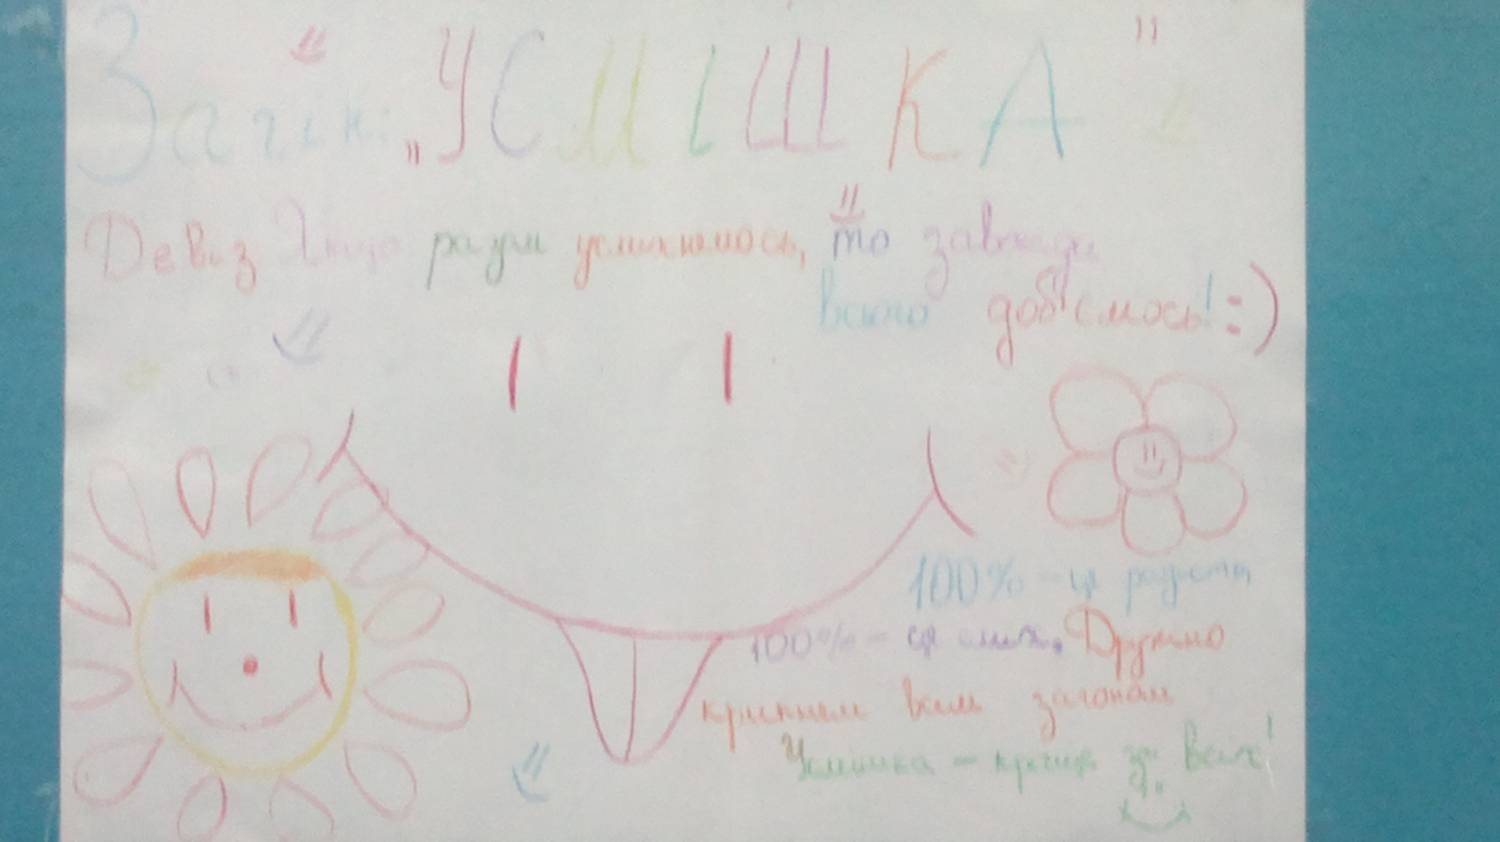 Загін: „УСМІШКА"
Девіз Якщо разом усміхнемось, то завжди
всього доб'ємось! :)
100% - ця радість
100% - ця сміх. Дружно
крикнем всім загоном
Усмішка - краще за всіх!